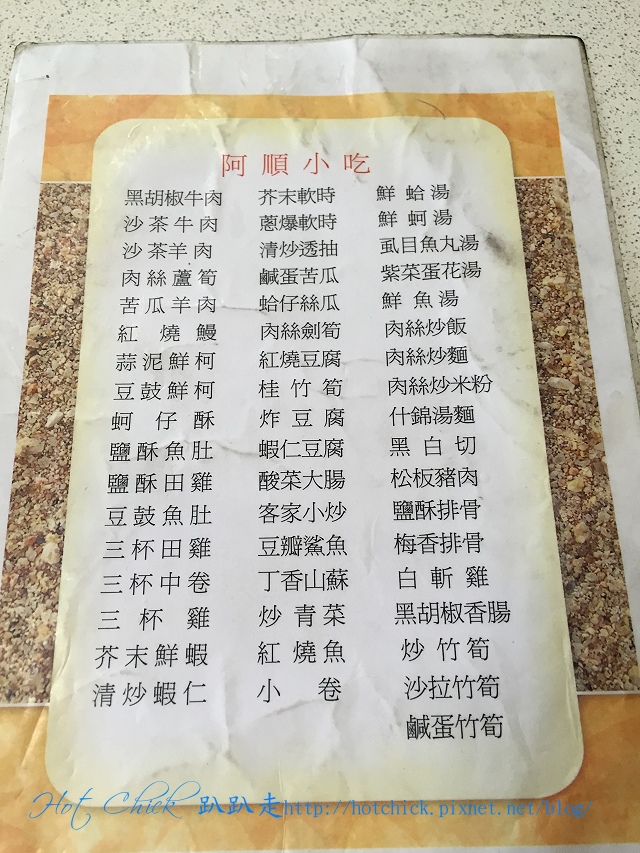 阿順小吃
黑胡椒牛肉
沙茶牛肉
沙茶羊肉
肉絲蘆筍
苦瓜羊肉
紅燒鰻
蒜泥鮮柯
豆鼓鮮柯
蚵仔酥
鹽酥魚肚
鹽酥田雞
豆鼓魚肚
三杯田雞
三杯中卷
三杯雞
芥末鮮蝦
清炒蝦仁
芥末軟時
蔥爆軟時
清炒透抽
鹹蛋苦瓜
蛤仔絲瓜
肉絲劍筍
紅燒豆腐
桂竹筍
炸豆腐
蝦仁豆腐
酸菜大腸
客家小炒
豆瓣鯊魚
丁香山蘇
炒青菜
紅燒魚
小卷
鮮蛤湯
鮮蚵湯
虱目魚丸湯
紫菜蛋花湯
鮮魚湯
肉絲炒飯
肉絲炒麵
肉絲炒米粉
什錦湯麵
黑白切
松板豬肉
鹽酥排骨
梅香排骨
白斬雞
黑胡椒香腸
炒竹筍
沙拉竹筍
鹹蛋竹筍
Hot Chick 趴趴走http://hotchick.pixnet.net/blog/